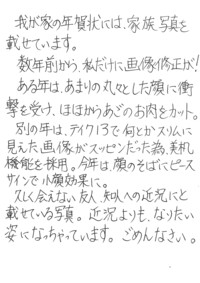 我が家の年賀状には、家族写真を
載せています。
数年前から、私だけに画像修正が!
ある年は、あまりの丸々とした顔に衝
撃を受け、ほほからあごのお肉をカット。
別の年は、テイク13で何とかスリムに
見えた画像がスッピンだった為、美肌
機能を採用。今年は、顔のそばにピース
サインで小顔効果に。
久しく会えない友人、知人への近況にと
載せている写真。近況よりも、なりたい
姿になっちゃっています。ごめんなさい。